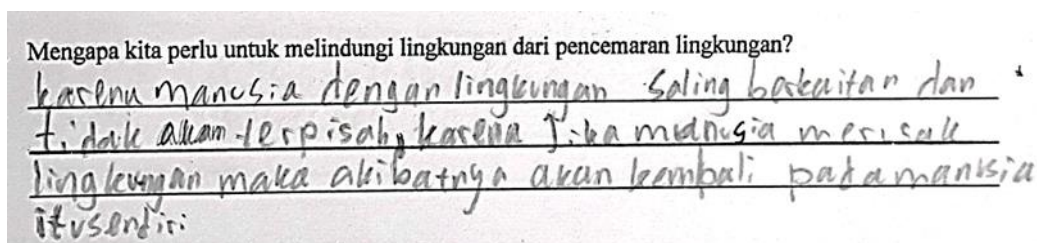 Mengapa kita perlu untuk melindungi lingkungan dari pencemaran lingkungan?
karena manusia dengan lingkungan saling berkaitan dan
tidak akam terpisah, karena jika manusia merusak
lingkungan maka akibatnya akan kembali pada manusia
itu sendiri